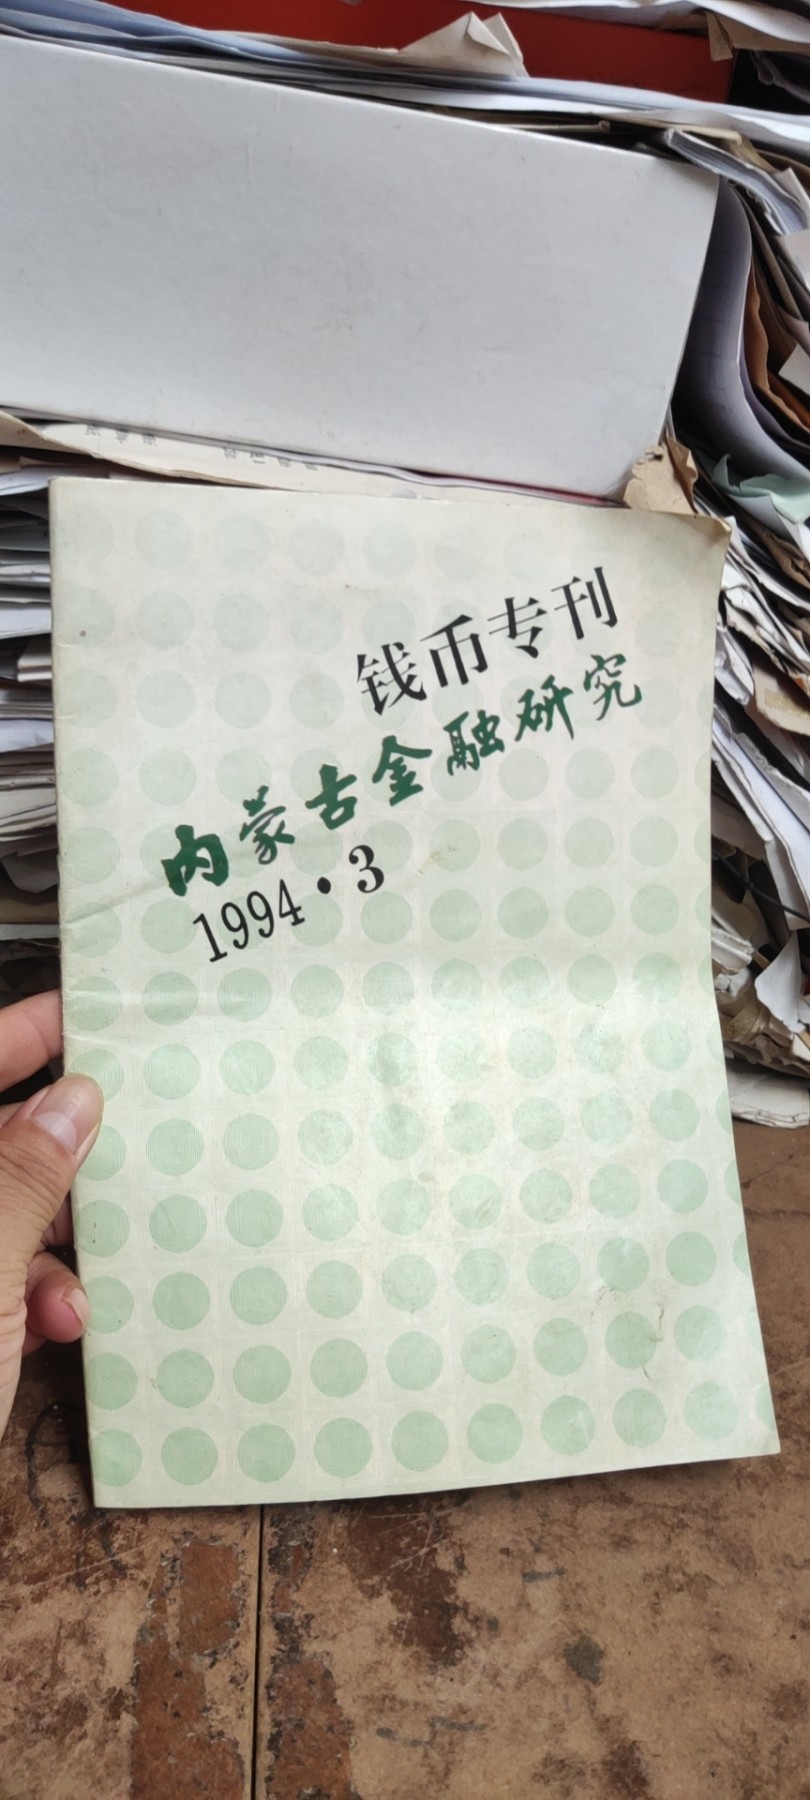 钱币专刊
内蒙古金融研究
1994·3